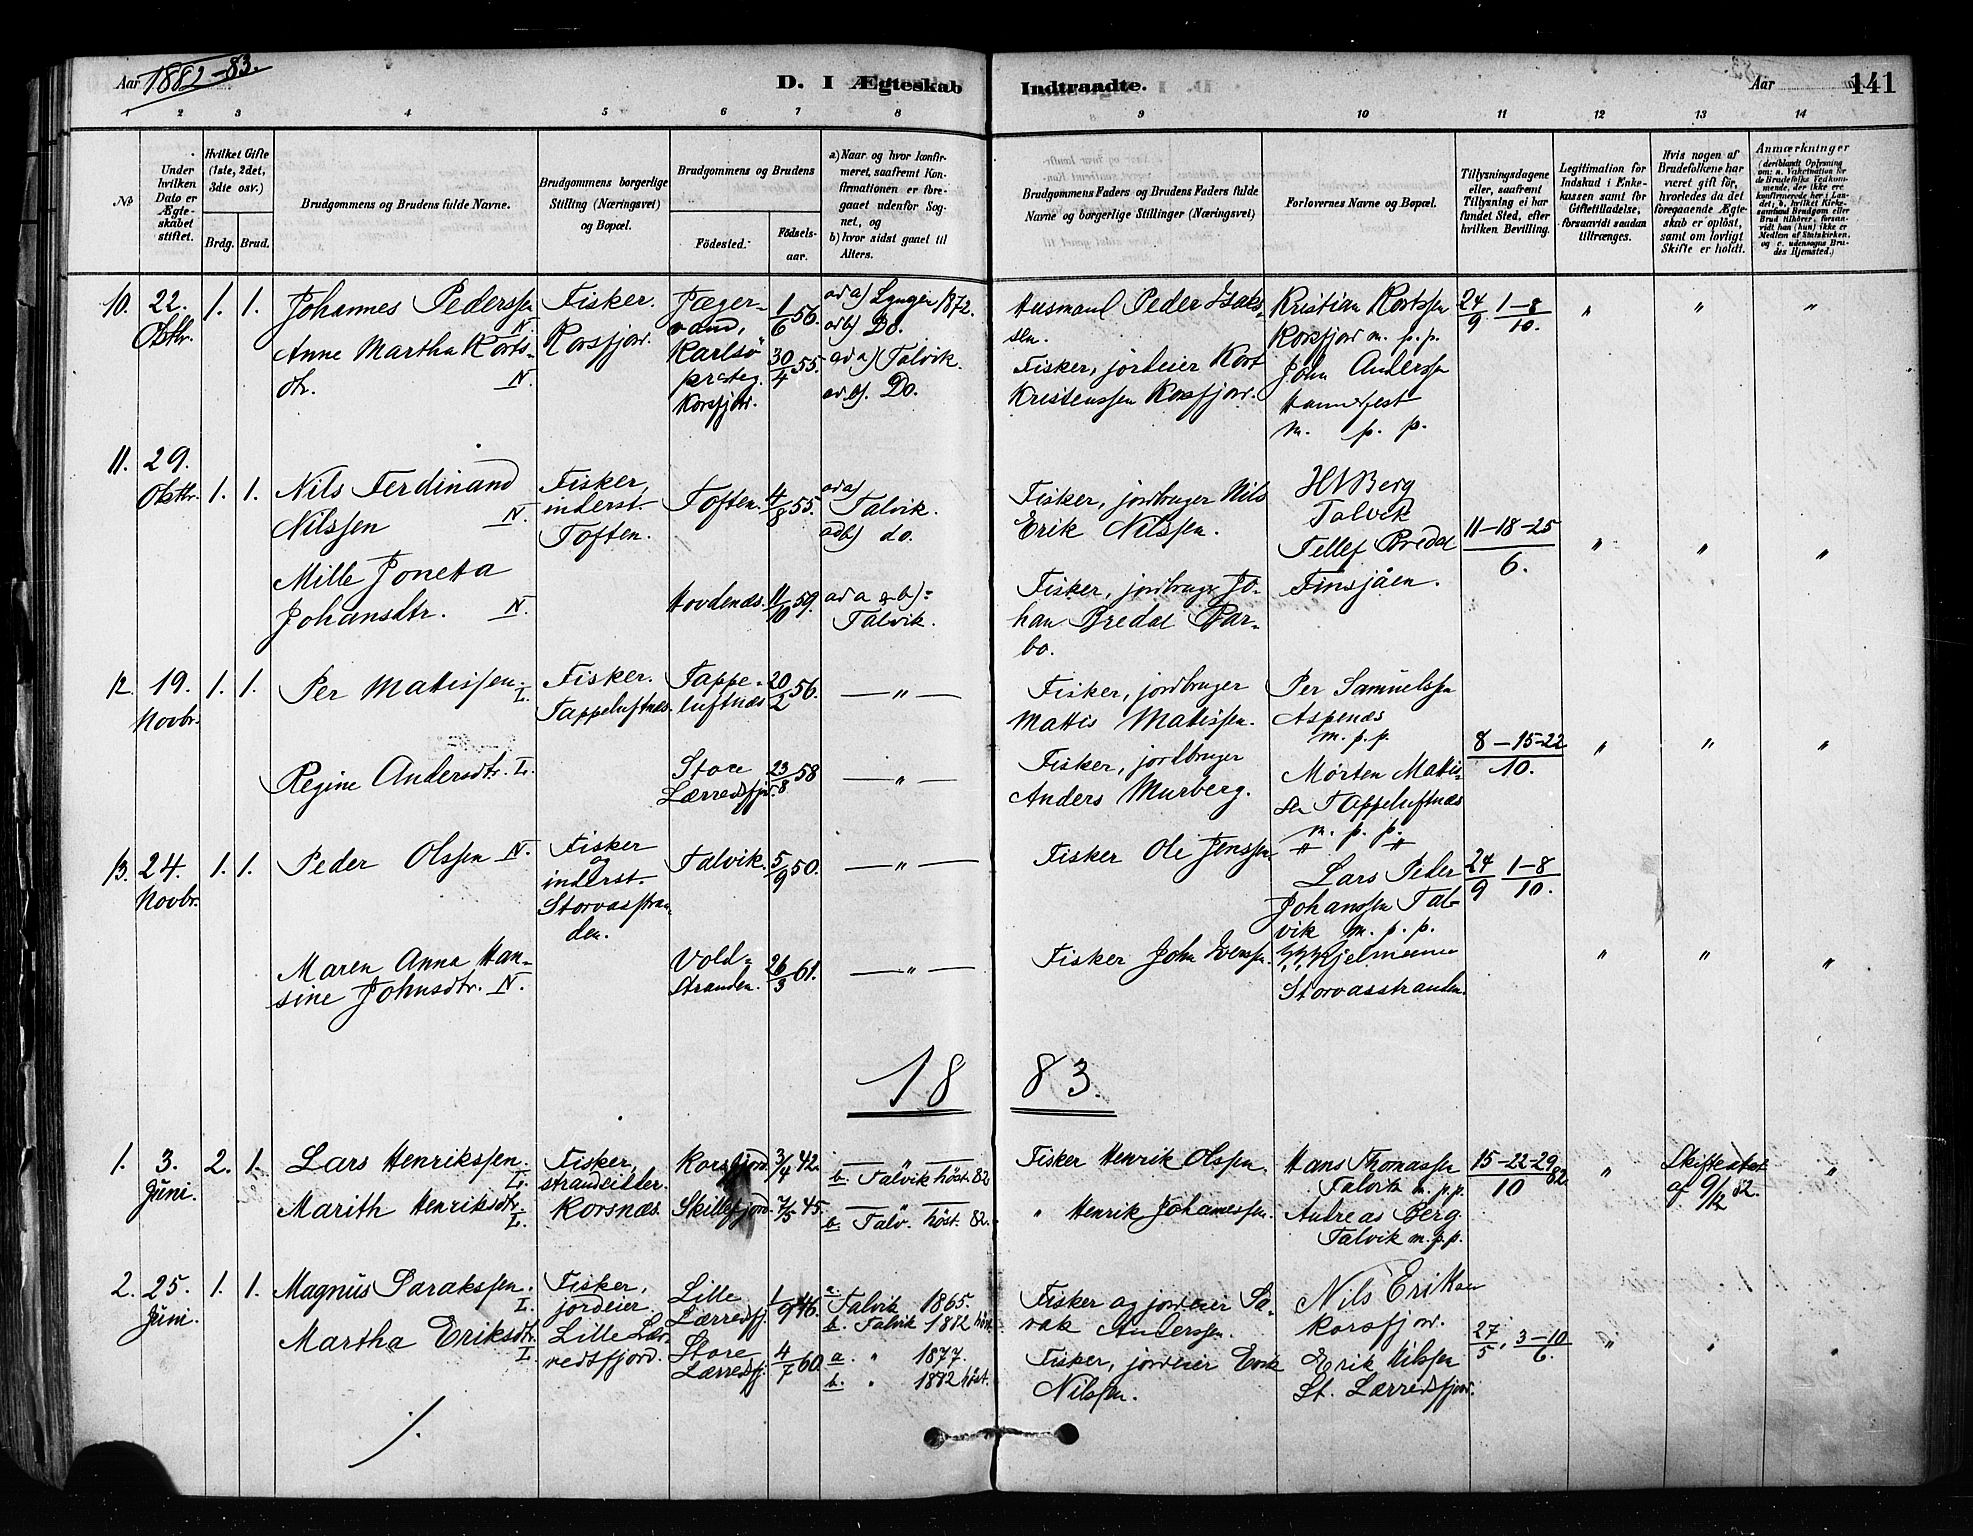 Aar 1882–83.
D. I Ægteskab Indtraadte.
Aar 141
1 2 3 4 5 6 7 8 9 10 11 12 13 14
№
Under hvilken Dato er Ægteskabet stiftet.
Hvilket Gifte (1ste, 2det, 3dte osv.)
Brdg. Brud.
Brudgommens og Brudens fulde Navne.
Brudgommens borgerlige Stilling (Næringsvei) og Bopæl.
Brudgommens og Brudens
Fødested.
Fødselsaar.
a) Naar og hvor konfirmeret, saafremt Konfirmationen er foregaaet udenfor Sognet, og
b) hvor sidst ganet til Alters.
Brudgommens Faders og Brudens Faders fulde Navne og borgerlige Stillinger (Næringsvei)
Forlovernes Navne og Bopæl.
Tillysningsdagene eller, saafremt Tillysning ei har fundet Sted, efter hvilken Bevilling.
Legitimation for Indskud i Enkekassen samt for Giftetilladelse, forsaavidt saadan tiltrænges.
Hvis nogen af Brudefolkene har været gift før, hvorledes da det foregaaende Ægteskab er opløst, samt om lovligt Skifte er holdt.
Anmærkninger
10. 22. Oktbr. 1. 1.
Johannes Pederssen N.
Anne Martha Kortsdtr. N.
Fisker. Korsfjord.
Jægervand, Karlsö præsteg. 1/6 56.
Korsfjord. 30/4 55.
ad a) Lyngen 1872.
ad b) Do.
ad a) Talvik.
ad b). Do.
Husmand Peder Isakssen.
Fisker, jordeier Kort Kristenssen Korsfjord.
Kristian Kortssen Korsfjord m. p. p.
John Anderssen Hammerfest m. p. p.
24/9 1–8/10.
" " "
11. 29. Oktbr. 1. 1.
Nils Ferdinand Nilssen N.
Mille Joneta Johansdtr. N.
Fisker, inderst. Toften.
Toften. 4/8 55.
Hovdenæs. 11/10 59.
ad a) Talvik.
ad b) do.
ad a & b) = Talvik.
Fisker, jordbruger Nils Erik Nilssen.
Fisker, jordbruger Johan Bredal Barbo.
H Berg Talvik
Tellef Bredal Finsjåen.
11–18–25/6.
" " "
12. 19. Novbr. 1. 1.
Per Matissen. L.
Regine Andersdtr. L.
Fisker. Tappeluftnæs.
Tappeluftnæs 20/2 56.
Store Lærredsfjor. 23/8 58
— " —
— " —
Fisker, jordbruger Mattis Matissen.
Fisker, jordbruger Anders Murberg.
Per Samuelssen Aspenæs m. p. p.
Mørten Matissen Tappeluftnæs m. p. p.
8–15–22/10.
" " "
13. 24. Novbr. 1. 1.
Peder Olssen N.
Maren Anna Hansine Johnsdtr. N.
Fisker og inderst. Storvasstranden.
Talvik. 5/9 50.
Voldstranden. 26/3 61.
— " —
— " —
Fisker Ole Jenssen
Fisker John Evenssen.
Lars Peder Johanssen Talvik m. p. p.
Hjelmeme Storvasstranden.
24/9 1–8/10.
" " "
18 83.
1. 3. Juni. 2. 1.
Lars Henrikssen. L.
Marith Henriksdtr. L.
Fisker, strandsidder. Korsnæs.
Korsfjord 3/4 42.
Skillefjord 7/5 45.
— " —
b. Talvik höst. 82
— " —
b. Talv. höst. 82.
Fisker Henrik Olssen.
" Henrik Johanessen.
Hans Thomassen Talvik m. p. p.
Andreas Berg Talvik m. p. p.
15–22–29/10 82
"
Skifteattest af 9/12 82.
"
2. 25. Juni. 1. 1.
Magnus Sarakssen. L.
Martha Eriksdtr. L.
Fisker, jordeier. Lille Lærredsfjord.
Lille Lærredsfj. 1/9 46.
Store Lærredsfj. 4/7 60.
a. Talvik 1865.
b. Talvik 1882 höst
a. " 1877.
b. " 1882 höst.
Fisker og jordeier Sarak Anderssen.
Fisker, jordeier Erik Nilssen.
Nils Eriksen Korsfjord.
Erik Nilssen St. Lærredsfjord.
27/5, 3–10/6.
" " "
./.